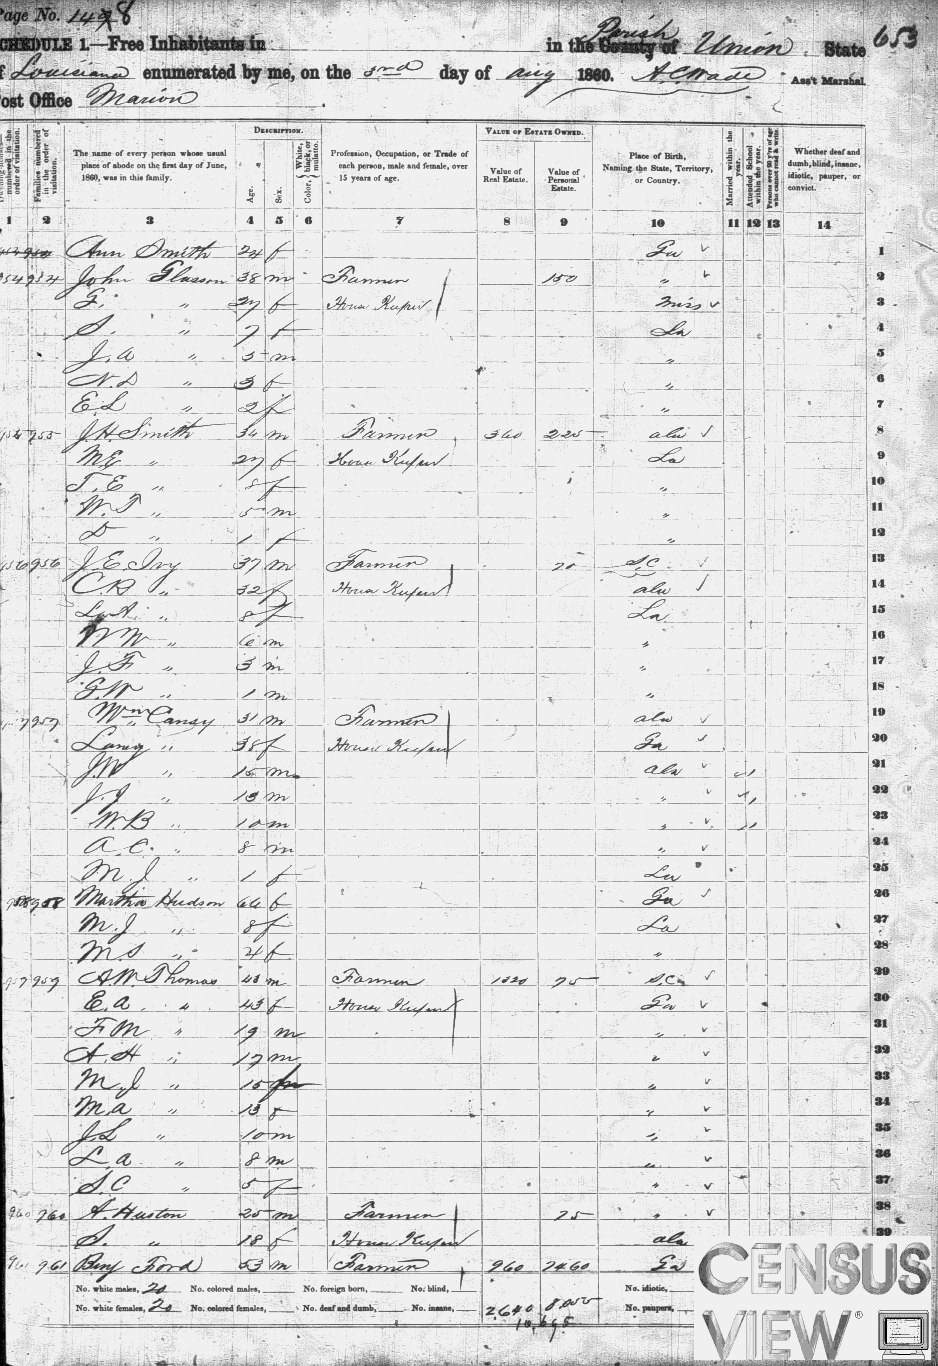 Page No. 148
SCHEDULE 1.—Free Inhabitants in in the Parish County of Union State 653
of Louisiana enumerated by me, on the 3rd day of Aug 1860. A C Wade Ass't Marshal.
Post Office Marion
DESCRIPTION. VALUE OF ESTATE OWNED.
The name of every person whose usual place of abode on the first day of June, 1860, was in this family. Age. Sex. Color, White, black, or mulatto. Profession, Occupation, or Trade of each person, male and female, over 15 years of age. Value of Real Estate. Value of Personal Estate. Place of Birth, Naming the State, Territory, or Country. Married within the year. Attended School within the year. Whether deaf and dumb, blind, insane, idiotic, pauper, or convict.
1 2 3 4 5 6 7 8 9 10 11 12 13 14
Ann Smith 24 f Ga 1
954 954 John Glasson 38 m Farmer 150 " 2
G. " 27 f House Keeper Miss 3
S. " 7 f La 4
J. A " 5 m " 5
N. D " 3 f " 6
E L " 2 f " 7
955 955 J. H. Smith 34 m Farmer 360 225 ala 8
M E " 27 f House Keeper La 9
T. E " 8 f " 10
W. T " 5 m " 11
D " 1 f " 12
956 956 J. E. Ivy 37 m Farmer 70 S.C. 13
C. B " 32 f House Keeper ala 14
L. A. " 8 f La 15
W W " 6 m " 16
J. F " 3 m " 17
G. W " 1 m " 18
957 Wm Cansy 31 m Farmer ala 19
" 38 f House Keeper Ga 20
J. W " 15 m ala 21
J. J " 13 m " 22
W. B " 10 m " 23
A. C. " 8 m " 24
M. J " 1 f La 25
958 958 Martha Hudson 66 f Ga 26
M. J " 8 f La 27
M S " 4 f " 28
959 959 A W Thomas 43 m Farmer 1320 75 S.C. 29
E. a. " 43 f House Keeper Ga 30
F M " 19 m " 31
A. H " 17 m " 32
M. J " 15 " 33
M. a " 13 f " 34
J. L " 10 m " 35
L. a " 8 m " 36
S. C " 5 f " 37
960 960 A. Huston 25 m Farmer 75 " 38
S. " 18 f House Keeper ala 39
961 961 Benj Ford 53 m Farmer 960 7460 Ga
No. white males, 20 No. colored males, No. foreign born, No. blind, No. idiotic,
No. white females, 20 No. colored females, No. deaf and dumb, No. insane, 2640 8055 No. paupers,
10,695
CENSUS
VIEW®